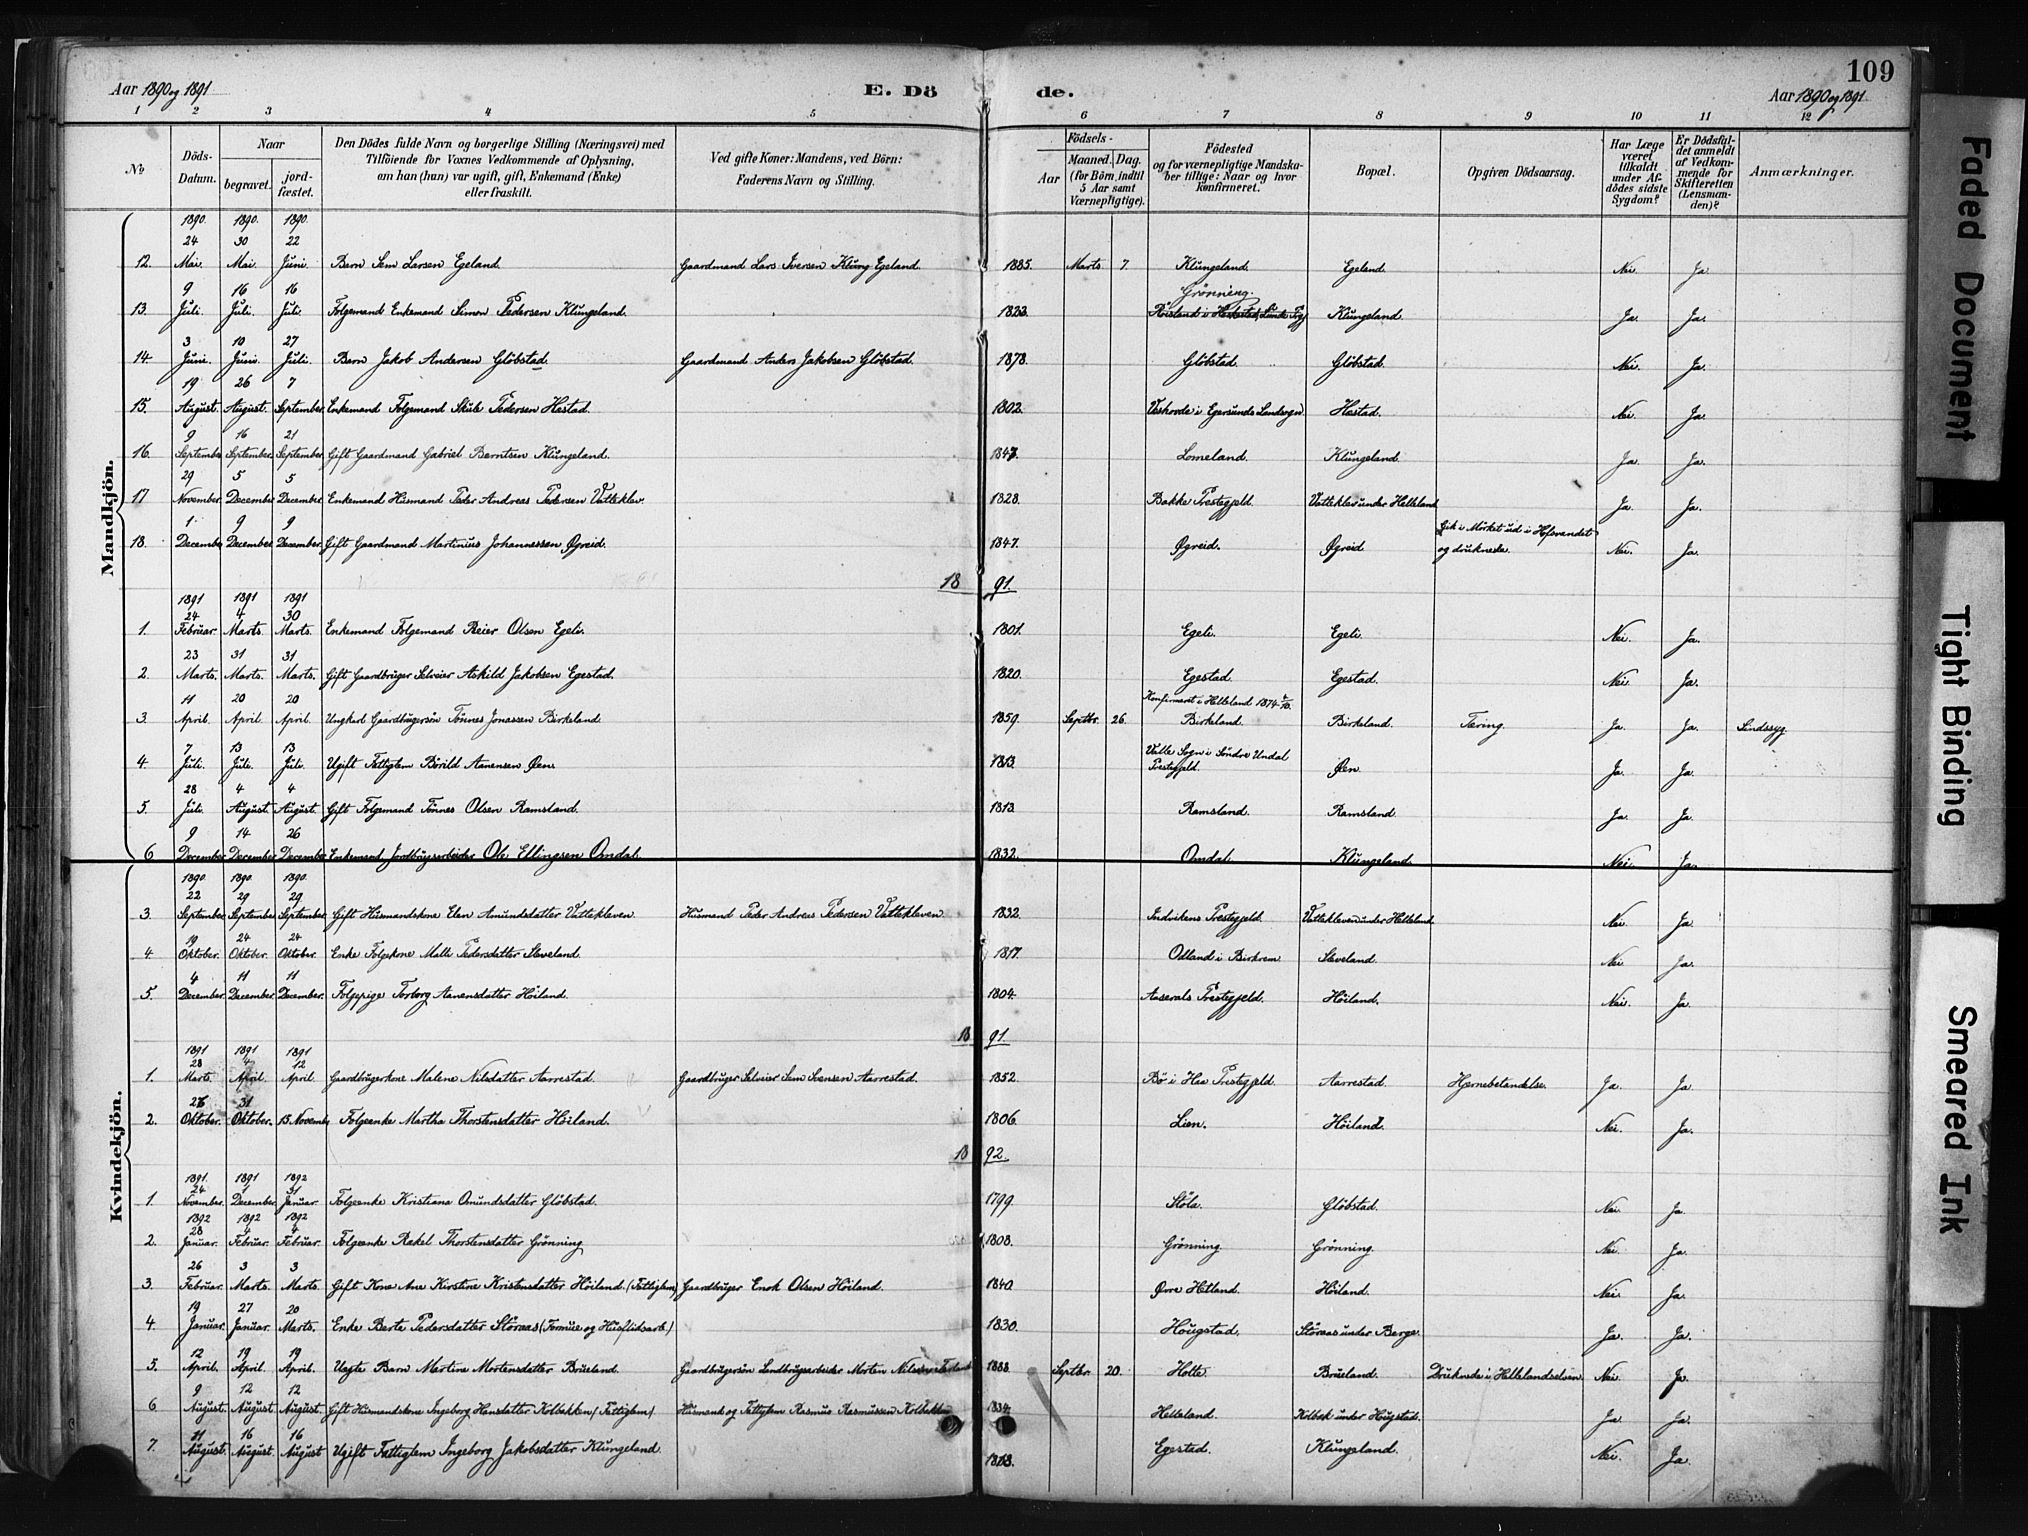 Aar 1890 og 1891
E. Dö
de.
109
Aar 1890 og 1891
1 2 3 4 5 6 7 8 9 10 11 12
No
Döds-Datum.
Naar
begravet.
jord-fæstet.
Den Dödes fulde Navn og borgerlige Stilling (Næringsvei) med
Tilföiende for Voxnes Vedkommende af Oplysning,
om han (hun) var ugift, gift, Enkemand (Enke)
eller fraskilt.
Ved gifte Koner: Mandens, ved Börn:
Faderens Navn og Stilling.
Födsels-
Aar
Maaned. Dag.
(for Börn indtil
5 Aar samt
Værnepligtige).
Födested
og for værnepligtige Mandska-
ber tillige: Naar og hvor
konfirmeret.
Bopæl.
Opgiven Dödsaarsag.
Har Læge
været
tilkaldt
under Af-
dödes sidste
Sygdom?
Er Dödsfal-
det anmeldt
af Vedkom-
mende for
Skifteretten
(Lensman-
den)?
Anmærkninger.
Mandkjön.
1890. 1890. 1890.
24 30 22
12. Mai. Mai. Juni. Barn Sem Larsen Egeland. Gaardmand Lars Iversen Klung Egeland. 1885. Marts 7. Klungeland. Egeland. Nei. Ja
9 16 16 Grönning.
13. Juli. Juli. Juli. Folgemand Enkemand Simon Pedersen Klungeland. 1823. Klungeland. Ja. Ja.
3 10 27
14. Juni. Juni. Juli. Barn Jakob Andersen Glöbstad. Gaardmand Anders Jakobsen Glöbstad. 1878. Glöbstad. Glöbstad. Nei. Ja.
19 26 7
15. August. August. September. Enkemand Folgemand Skule Pedersen Hestad. 1802. i Egersunds Landsogn. Hestad. Nei. Ja.
9 16 21
16. September September. September. Gift Gaardmand Gabriel Berntsen Klungeland. 1847. Lomeland. Klungeland. Ja. Ja.
29 5 5
17 November. December. December. Enkemand Husmand Peder Andreas Pedersen Vatteklev. 1828. Bakke Prestegjeld. Vatteklev under Helleland Ja. Ja.
1 9 9 Gik i Mörket ud i Hofsvandet
18. December. December. December. Gift Gaardmand Martinius Johannessen Øgreid. 1847. Øgreid. Øgreid og druknede. Nei. Ja.
18 91.
1891 1891 1891
24 4 30
1. Februar. Marts. Marts. Enkemand Folgemand Reier Olsen Egeli. 1801. Egeli. Egeli. Nei. Ja.
23 31 31
2. Marts. Marts. Marts. Gift Gaardbruger Selveier Askild Jakobsen Egestad. 1820. Egestad. Egestad. Nei. Ja.
11 20 20 Konfirmeret i Helleland 1874
3. April. April. April. Ungkarl Gaardbrugersön Tönnes Jonassen Birkeland 1859. Septbr. 26. Birkeland. Birkeland. Tæring. Ja. Ja. Sindssyg.
7 13 13 Valle Sogn i Söndre Undal
4. Juli. Juli. Juli. Ugift Fattiglem Börild Aanensen Øen. 1813. Prestegjeld. Øen. Ja. Ja.
28 4 4
5. Juli. August. August. Gift Folgemand Tönnes Olsen Ramsland. 1813. Ramsland. Ramsland. Ja. Ja
9 14 26
6. December December December Enkemand Jordbrugsarbeider Ole Ellingsen Omdal. 1832. Omdal. Klungeland. Nei. Ja.
Kvindekjön.
1890. 1890. 1890.
22 29 29
3. September. September. September. Gift Husmandskone Elen Amundsdatter Vatteklev­en. Husmand Peder Andreas Pedersen Vatteklev­en 1832. Indvikens Prestegjeld. Vatteklev­en under Helleland Nei. Ja
19 24 24
4. Oktober. Oktober. Oktober. Enke Folgekone Malli Pedersdatter Sleveland. 1817. Odland i Birkrem Sleveland. Nei Ja.
4 11 11
5. December. December. December. Folgepige Torborg Aanensdatter Höiland. 1804. Aaserals Prestegjeld. Höiland. Nei. Ja.
18 91
1891 1891 1891
28 4 12
1. Marts. April. April. Gaardbrugerkone Malene Nilsdatter Aarrestad. Gaardbruger Selveier Sem Svensen Aarrestad. 1852. Bö i Haa Prestegjeld. Aarrestad. Hjernebetændelse. Ja. Ja
31
2. Oktober. Oktober. 15. Novembr. Folgeenke Martha Thorstensdatter Höiland. 1806. Lien. Höiland. Nei. Ja.
18 92.
1891. 1891 1892
24 1 31
1. November. December. Januar. Folgeenke Kristiana Omundsdatter Glöbstad. 1799. Stöla. Glöbstad. Nei. Ja.
1892 1892 1892
28 4 4
2. Januar. Februar. Februar. Folgeenke Rakel Thorstensdatter Grönning 1808. Grönning. Grönning. Nei. Ja.
26 3 3
3. Februar. Marts. Marts. Gift Kone Ane Kirstine Kristensdatter Höiland. (Fattiglem) Gaardbruger Enok Olsen Höiland. 1840. Övre Hetland. Höiland. Nei. Ja.
19 27 20
4. Januar. Januar. Marts. Enke Berte Pedersdatter Störaas (Formue og Husflidsarb.) 1830. Hougstad. Störaas under Berge. Ja. Ja.
12 19 19
5. April. April. April. Uægte Barn Martine Mortensdatter Brüseland. Gaardbrugersön Landbrugsarbeider Morten 1888 Septbr. 20. Holte. Brüseland. Druknede i Hellelandselven. Nei. Ja.
9 12 12
6 August. August August. Gift Husmandskone Ingeborg Hansdatter Kolbakken (Fattiglem) Husmand og Fattiglem Rasmus Rasmussen Kolbakken 1834. Helleland. Kolbak under Hougstad. Ja. Ja.
11 16 16
7. August. August August Ugift Fattiglem Ingeborg Jakobsdatter Klungeland. Egestad. Klungeland. Nei. Ja.
Faded Document
Tight Binding
Smeared Ink